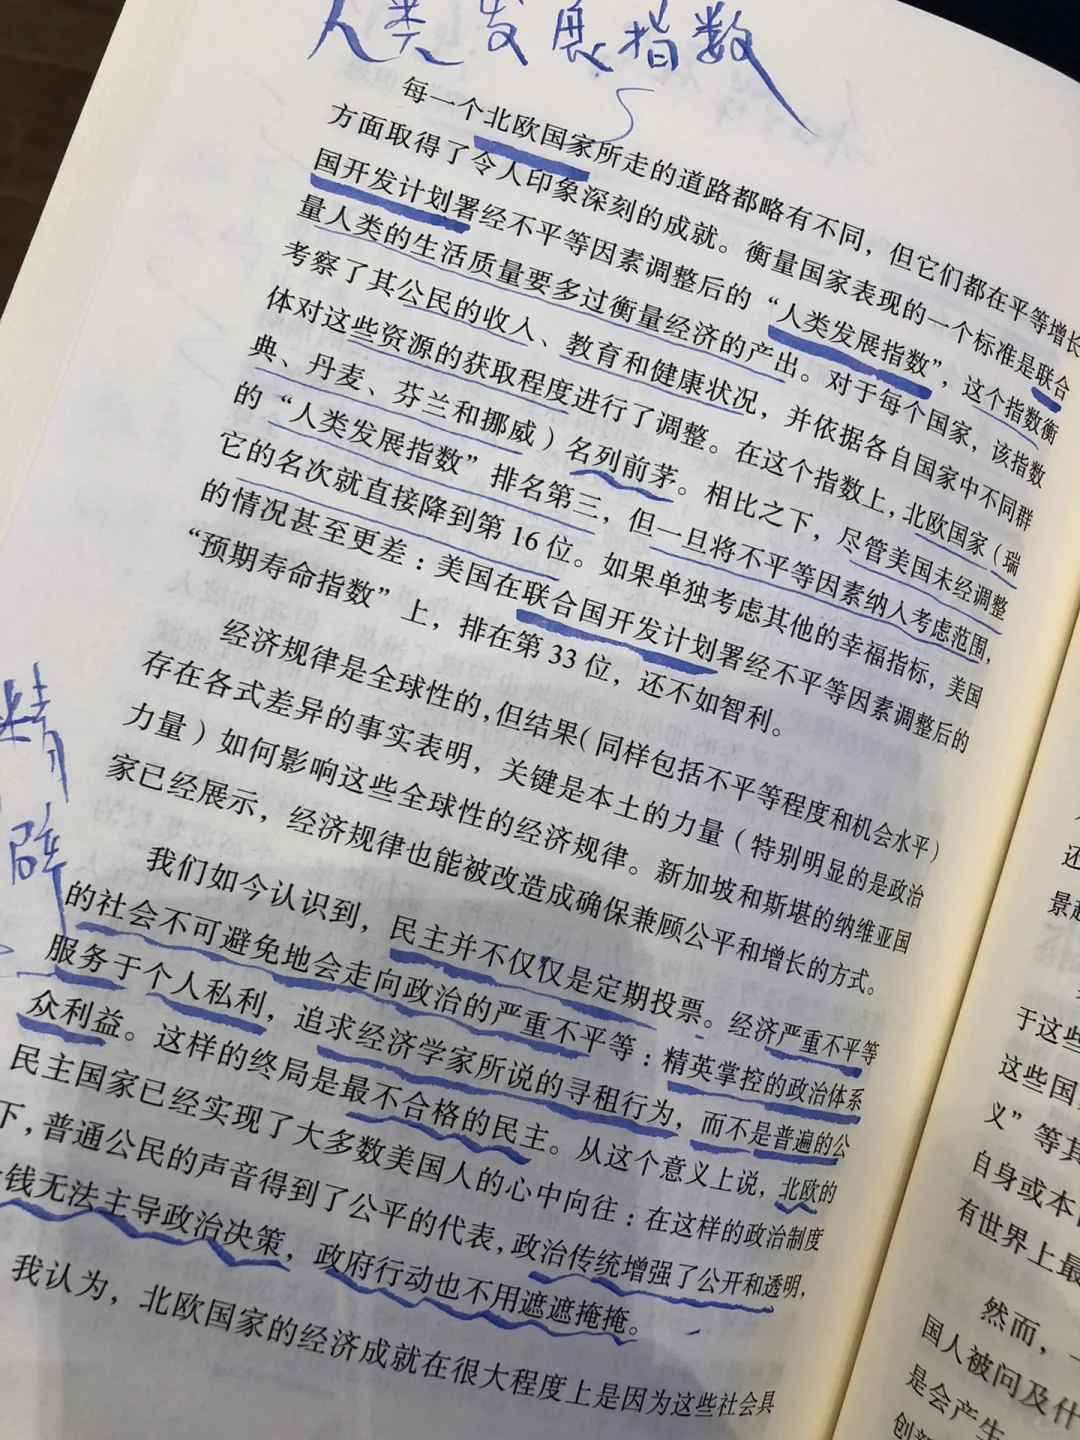 人类发展指数
每一个北欧国家所走的道路都略有不同，但它们都在平等增长
方面取得了令人印象深刻的成就。衡量国家表现的一个标准是联合
国开发计划署经不平等因素调整后的“人类发展指数”，这个指数衡
量人类的生活质量要多过衡量经济的产出。对于每个国家，该指数
考察了其公民的收入、教育和健康状况，并依据各自国家中不同群
体对这些资源的获取程度进行了调整。在这个指数上，北欧国家（瑞
典、丹麦、芬兰和挪威）名列前茅。相比之下，尽管美国未经调整
的“人类发展指数”排名第三，但一旦将不平等因素纳入考虑范围，
它的名次就直接降到第16位。如果单独考虑其他的幸福指标，美国
的情况甚至更差：美国在联合国开发计划署经不平等因素调整后的
“预期寿命指数”上，排在第33位，还不如智利。
经济规律是全球性的，但结果（同样包括不平等程度和机会水平）
存在各式差异的事实表明，关键是本土的力量（特别明显的是政治
力量）如何影响这些全球性的经济规律。新加坡和斯堪的纳维亚国
家已经展示，经济规律也能被改造成确保兼顾公平和增长的方式。
精
辟
我们如今认识到，民主并不仅仅是定期投票。经济严重不平等
的社会不可避免地会走向政治的严重不平等：精英掌控的政治体系
服务于个人私利，追求经济学家所说的寻租行为，而不是普遍的公
众利益。这样的终局是最不合格的民主。从这个意义上说，北欧的
民主国家已经实现了大多数美国人的心中向往：在这样的政治制度
下，普通公民的声音得到了公平的代表，政治传统增强了公开和透明，
钱无法主导政治决策，政府行动也不用遮遮掩掩。
我认为，北欧国家的经济成就在很大程度上是因为这些社会具
还
景
于这些
这些国
义”等其
自身或本
有世界上最
然而，
国人被问及什
是会产生
创新